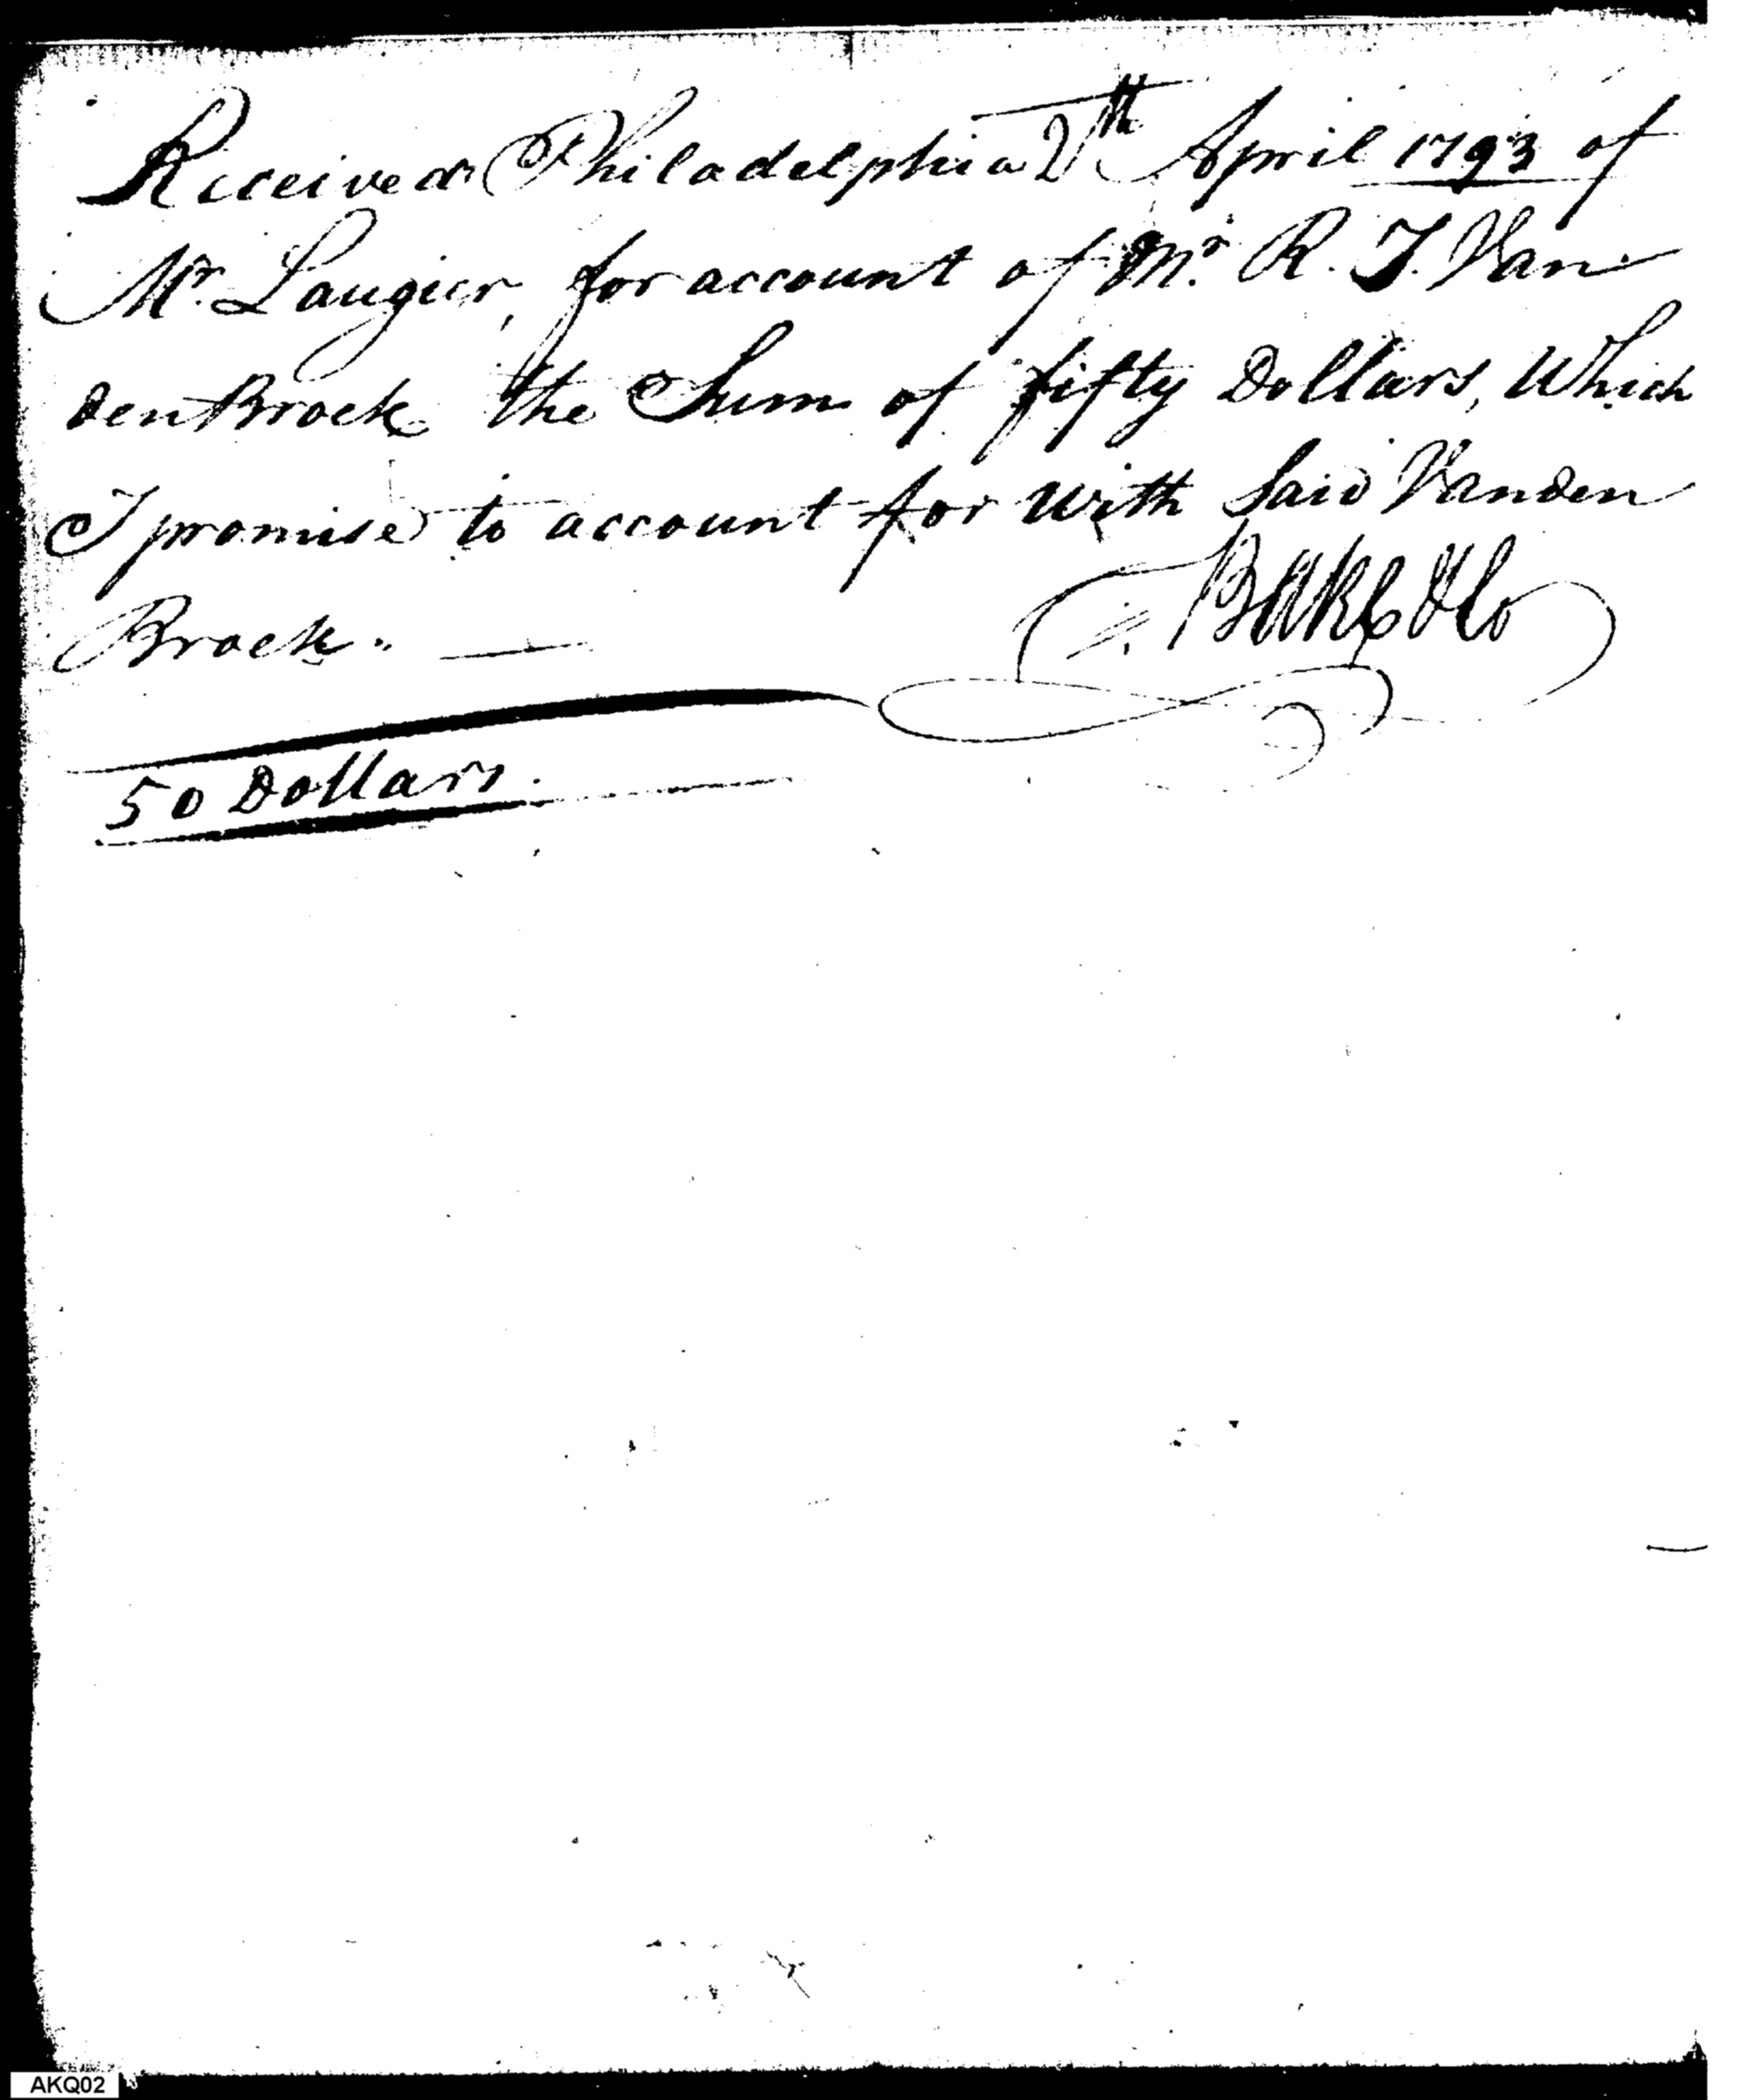 Received Philadelphia 2th April 1793 of
Mr. Laugier, for account of Mr. R. J. Van
den Broek the Sum of fifty Dollars, Which
I promise to account for With Said Vanden
Broek. —
50 Dollars.
AKQ02